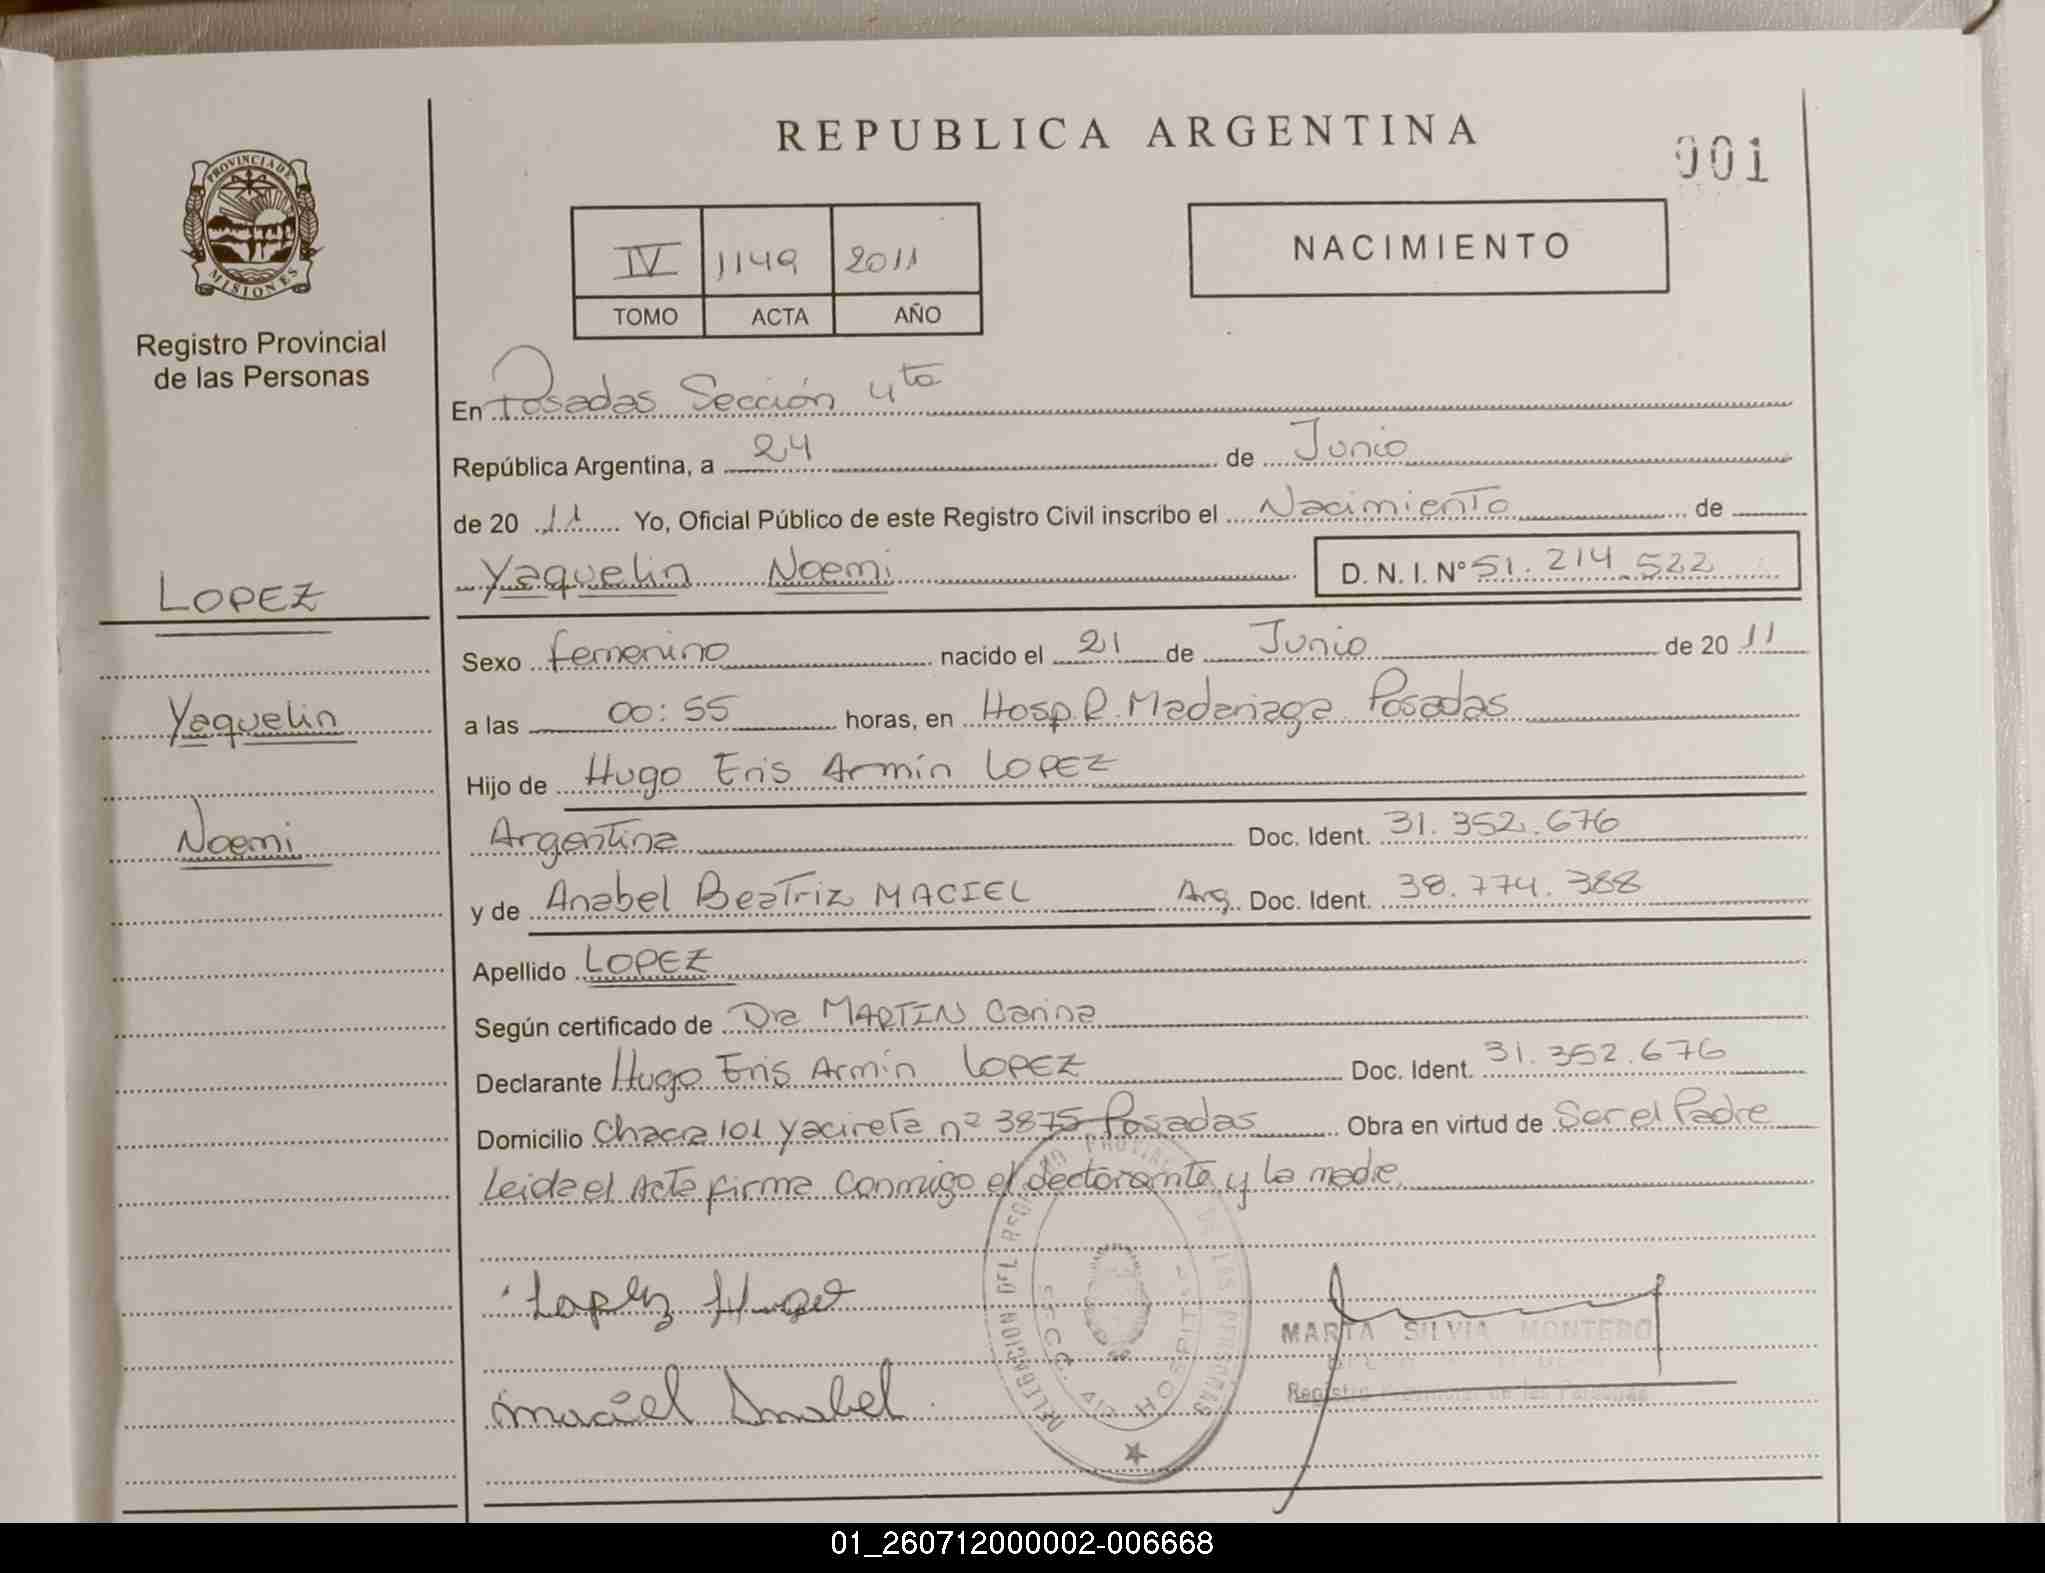 REPUBLICA ARGENTINA
001
PROVINCIA DE
MISIONES
Registro Provincial
de las Personas
IV 1149 2011
TOMO ACTA AÑO
NACIMIENTO
En Posadas Sección 4ta
República Argentina, a 24 de Junio
de 20 11 Yo, Oficial Público de este Registro Civil inscribo el Nacimiento de
Yaquelin Noemi D. N. I. Nº 51.214.522
LOPEZ
Yaquelin
Noemi
Sexo femenino nacido el 21 de Junio de 20 11
a las 00:55 horas, en Hosp. R. Madariaga Posadas
Hijo de Hugo Eris Armín LOPEZ
Argentina Doc. Ident. 31.352.676
y de Anabel Beatriz MACIEL Arg. Doc. Ident. 38.774.388
Apellido LOPEZ
Según certificado de Dra MARTIN Carina
Declarante Hugo Eris Armín LOPEZ Doc. Ident. 31.352.676
Domicilio Chacra 101 Yacireta nº 3875 Posadas Obra en virtud de Ser el Padre
Leida el Acta firma conmigo el declarante y la madre.
Lopez Hugo
Maciel Anabel
MARTA SILVIA MONTERO
Registro Provincial de las Personas
DELEGACION DEL REGISTRO PROVINCIAL DE LAS PERSONAS
SECC. 4ta HOSPITAL
01_260712000002-006668